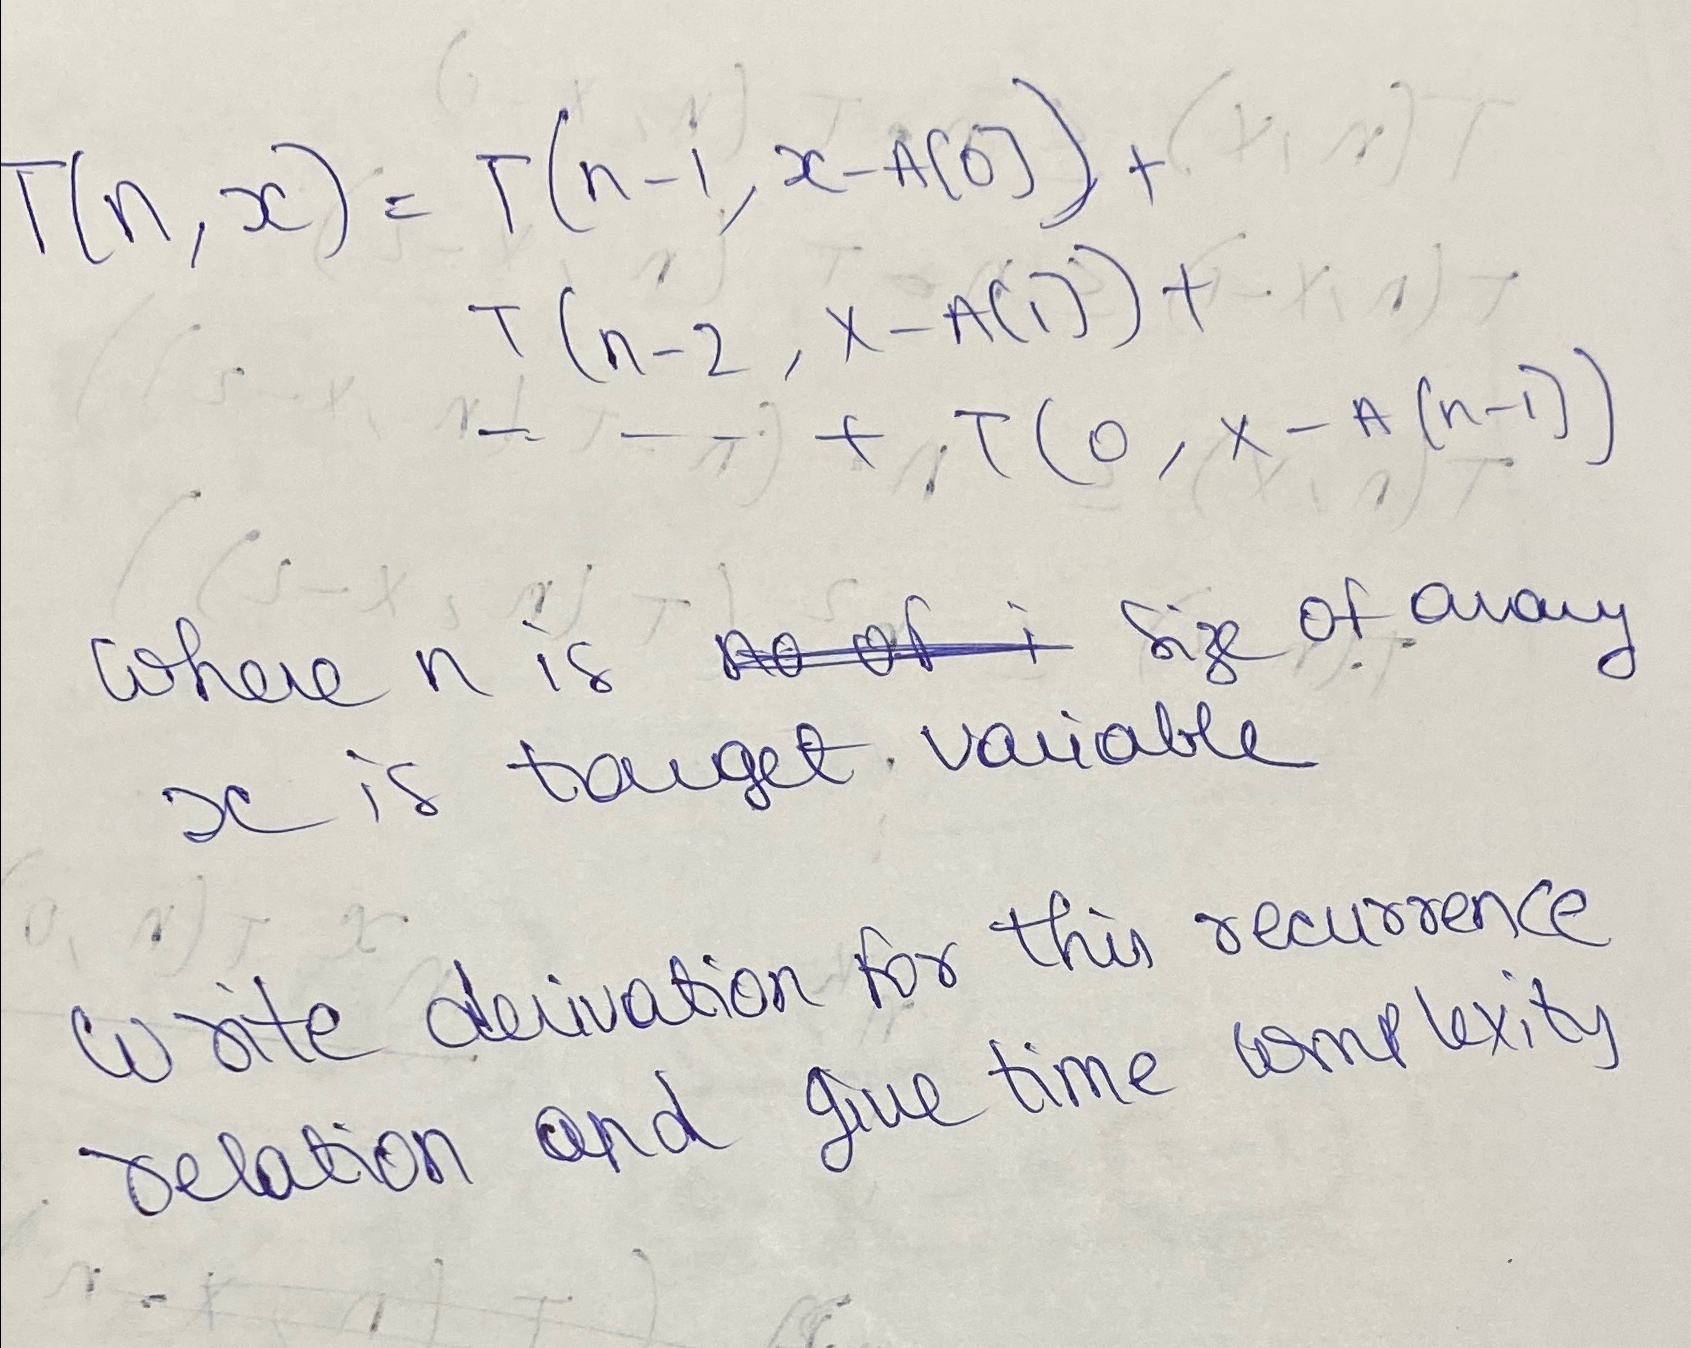 T(n, x) = T(n-1, x-A[0]) +
T(n-2, x-A[1]) +
- - - - + T(0, x-A[n-1])
where n is no of i size of array
x is target variable
write derivation for this recurrence
relation and give time complexity